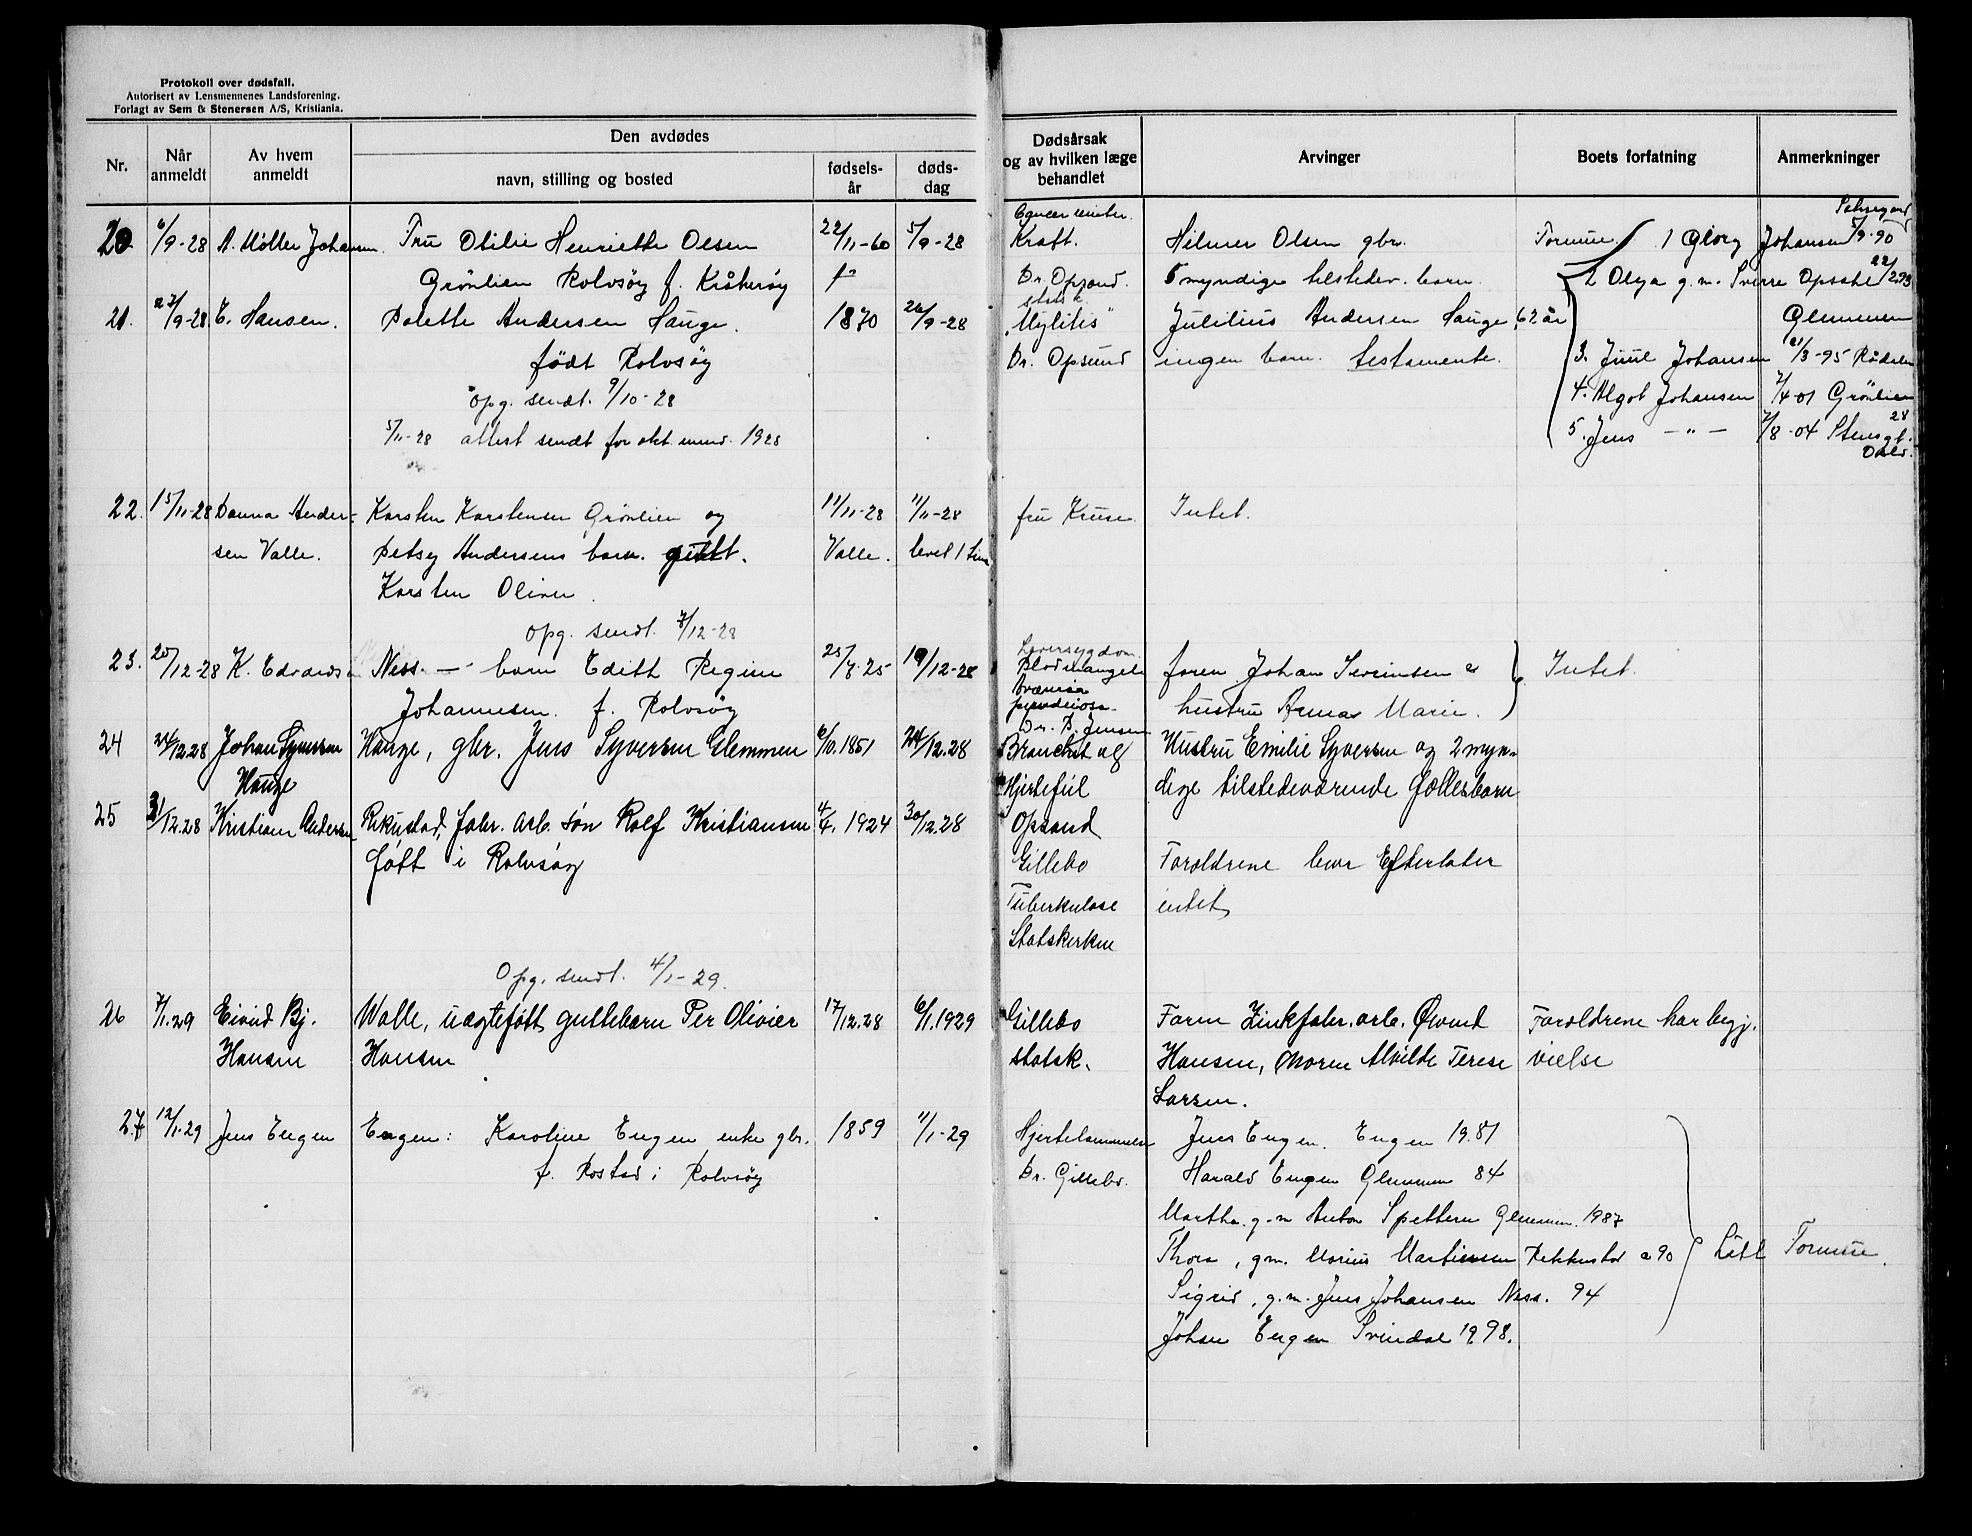 Protokoll over dødsfall.
Autorisert av Lensmennenes Landsforening.
Forlagt av Sem & Stenersen A/S, Kristiania.
Nr.
Når anmeldt
Av hvem anmeldt
Den avdødes
navn, stilling og bosted
fødsels-år
døds-dag
Dødsårsak og av hvilken læge behandlet
Arvinger
Boets forfatning
Anmerkninger
20. 6/9-28 A. Möller Johansen. Fru Otilie Henriette Olsen 22/11-60 5/9-28
Grönlien Rolvsöy f. Kråkeröy
Kraft.
Dr. Opsand.
statsk.
Hilmer Olsen gbr.
5 myndige tilstedev. barn.
Formue 1 Glory Johansen 5/9-90
2 Olga g.m. Sverre Opsahl 22/2 93
Glemmen
3. Juul Johansen 21/3-95
4. Algot Johansen 7/4-01 Grönlien
5. Jens — " — 7/8-04 Stensgt. 28
Oslo.
21. 27/9-28 E. Hansen. Palette Andersen Hauge. 1870 26/9-28
født Rolvsöy
opg. sendt. 9/10-28
5/11-28 attest sendt for okt. mnd. 1928
"Mylitis"
Dr. Opsund
Julilius Andersen Hauge, 62 år
ingen barn. testamente.
22. 15/11-28 Danna Ander- Karsten Karstensen Grönlien og 11/11-28 11/11-28
sen Valle. Betsy Andersens barn. gutt. Valle. levet 1 time
Karsten Oliver.
opg. sendt. 7/12-28
fru Kruse. Intet.
23. 20/12-28 K. Edvards Ness. — barn Edith Regine 25/7-25 19/12-28
Johannesen. f. Rolvsöy
Leversygdom
Blodmangel
perniciosa
Dr. B. Jensen
faren Johan Severinsen
hustru Anna Marie.
Intet.
24 24/12.28 Johan Syversen Hauge, gbr. Jens Syversen Glemmen 6/10.1851 24/12.28
Hauge
Bronchit og
Hjertefeil
Opsand
Hustru Emilie Syversen og 2 myn-
dige tilstedeværende fællesbarn
25 31/12.28 Kristian Andersen Rekustad, fabr. arb. søn Rolf Kristiansen 4/4. 1924 30/12.28
født i Rolvsøy
Gillebo
Tuberkulose
Statskirken
Foreldrene lever Efterlater
intet
Opg. sendt. 4/1-29.
26 7/1.29 Eivind Bj. Walle, uægtefødt guttebarn Per Olivier 17/12.28 6/1.1929
Hansen Hansen
Gillebo
statsk.
Faren Zinkfabr. arb. Øivind
Hansen, moren Alvilde Terese
Larsen.
Foreldrene har begj.
vielse
27. 12/1-29 Jens Engen Engen: Karoline Engen enke gbr. 1859 11/1-29
f. Rostad i Rolvsöy
Hjertelammelse
Dr. Gillebo.
Jens Engen. Engen 19.81
Harald Engen Glemmen 84
Martha. g.m Anton Spetteren Glemmen. 1987
Thora, g.m. Marius Martinsen Rekkustad a 90
Sigrid, g.m. Jens Johansen Ness. 94
Johan Engen Svindal 1998.
Litt Formue.